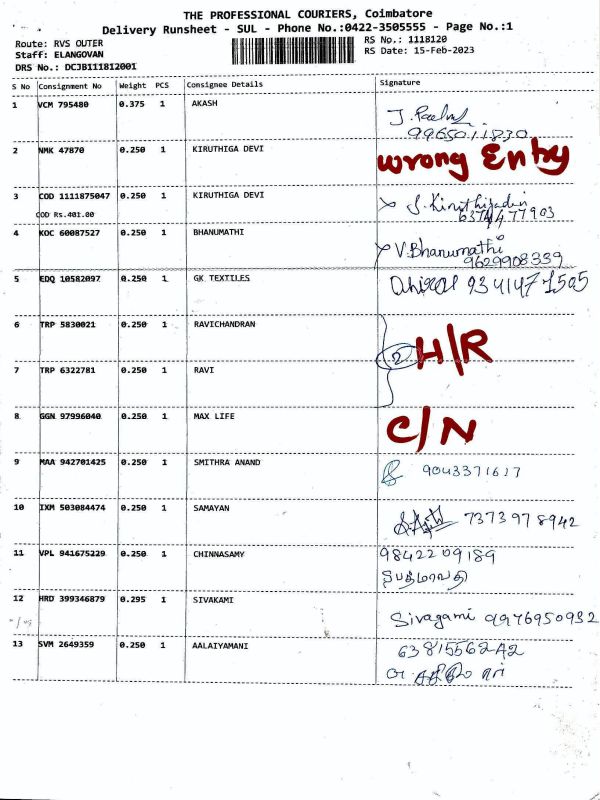 THE PROFESSIONAL COURIERS, Coimbatore
Delivery Runsheet - SUL - Phone No.:0422-3505555 - Page No.:1
Route: RVS OUTER RS No.: 1118120
Staff: ELANGOVAN RS Date: 15-Feb-2023
DRS No.: DCJB111812001
S No Consignment No Weight PCS Consignee Details Signature
1 VCM 795480 0.375 1 AKASH
9965011830
2 NMK 47870 0.250 1 KIRUTHIGA DEVI wrong Entry
3 COD 1111875047 0.250 1 KIRUTHIGA DEVI
COD Rs.401.00
4 KOC 60087527 0.250 1 BHANUMATHI V.Bhanumathi
9629908339
5 EDQ 10582097 0.250 1 GK TEXTILES 9341471505
6 TRP 5830021 0.250 1 RAVICHANDRAN
2 H/R
7 TRP 6322781 0.250 1 RAVI
8 GGN 97996040 0.250 1 MAX LIFE C/N
9 MAA 942701425 0.250 1 SMITHRA ANAND 9043371617
10 IXM 503084474 0.250 1 SAMAYAN 7373978942
11 VPL 941675229 0.250 1 CHINNASAMY 9842209189
பத்மாவதி
12 HRD 399346879 0.295 1 SIVAKAMI Sivagami 9976950932
13 SVM 2649359 0.250 1 AALAIYAMANI 6381556242